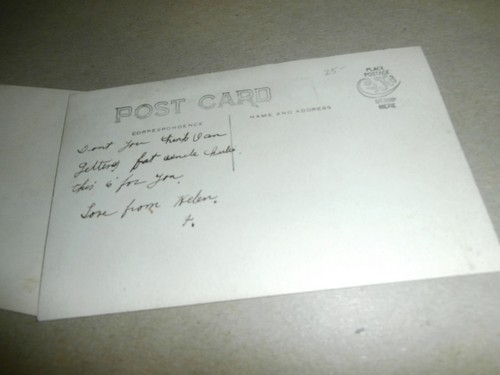 25-
PLACE
POSTAGE
STAMP
HERE
POST CARD
CORRESPONDENCE
NAME AND ADDRESS
Dont you think I am
getting fat uncle Charlie
this is for you.
Love from Helen.
x.